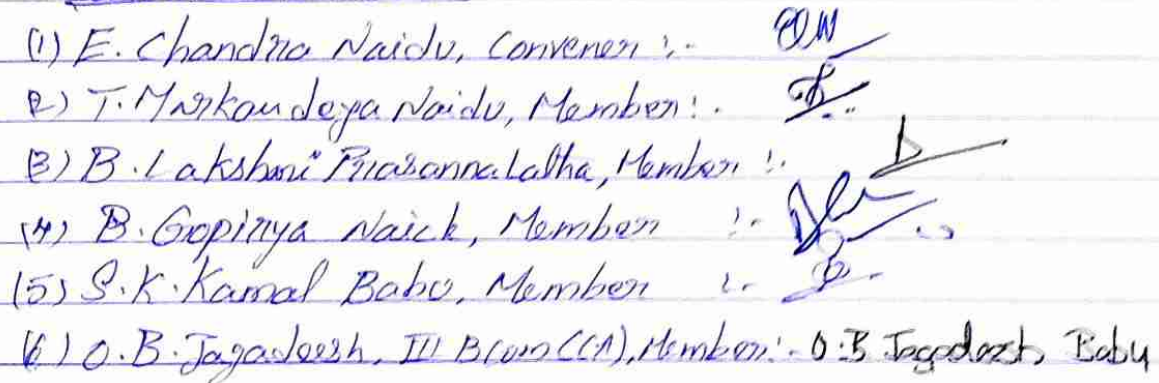 (1) E. Chandra Naidu, Convener :-
(2) T. Markandeya Naidu, Member :-
(3) B. Lakshmi Prasanna Latha, Member :-
(4) B. Gopinya Naick, Member :-
(5) S.K. Kamal Babu, Member :-
(6) O.B. Jagadeesh, III BCom (CA), Member :- O.B Jagadeesh Babu